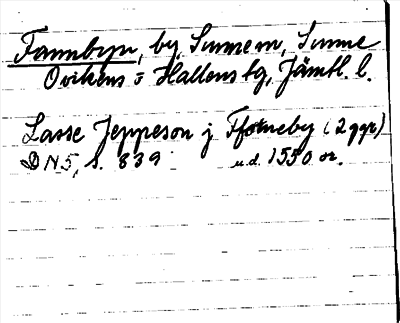 Fannbyn, by, Sunne sn, Sunne
Ovikens o Hallens tg, Jämtl. l.
Lasse Jeppeson j Fforneby (2 ggr)
DN 5, s. 839 u.d. 1550 or.